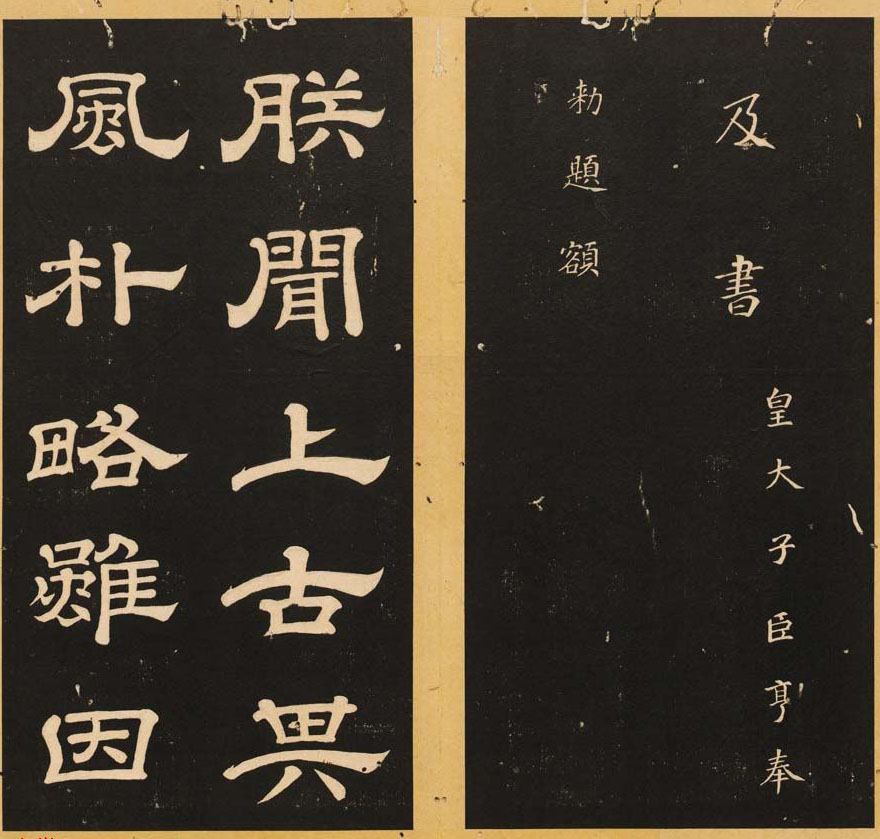 及書皇大子臣亨奉
勅題額
朕聞上古其
風朴略雖因